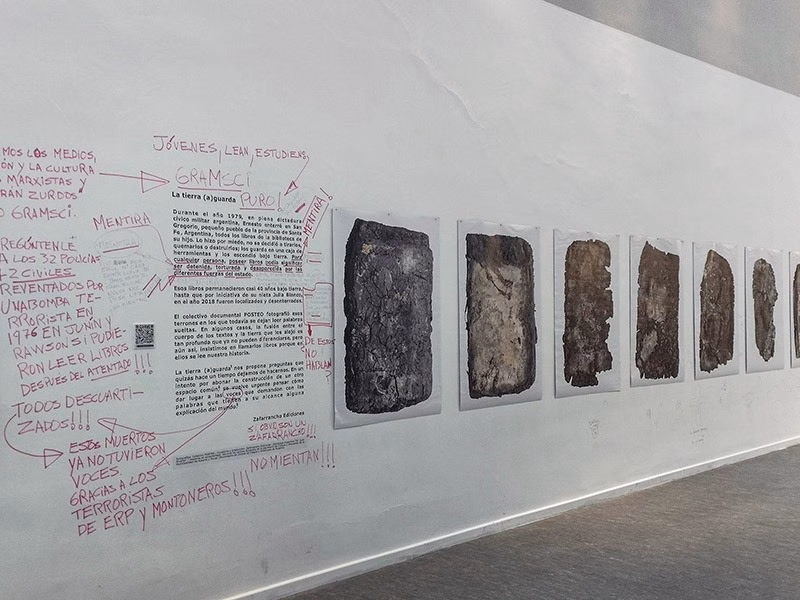 MOS LOS MEDIOS,
ÓN Y LA CULTURA
MARXISTAS Y
RÁN ZURDOS"
GRAMSCI.
JÓVENES, LEAN, ESTUDIENS,
GRAMSCI
PURO!
MENTIRA
MENTIRA!
La tierra (a)guarda
Durante el año 1979, en plena dictadura
cívico militar argentina, Ernesto enterró en San
Gregorio, pequeño pueblo de la provincia de Santa
Fe, Argentina, todos los libros de la biblioteca de
su hijo. Lo hizo por miedo, no se decidió a tirarlos,
quemarlos o destruirlos; los guardó en una caja de
herramientas y los escondió bajo tierra. Por
cualquier persona, poseer libros podía significar
ser detenida, torturada y desaparecida por las
diferentes fuerzas del estado.
Esos libros permanecieron casi 40 años bajo tierra,
hasta que por iniciativa de su nieta Julia
en el año 2018 fueron localizados y desenterrados.
El colectivo documental POSTEO fotografió esos
terrones en los que todavía se dejan leer palabras
sueltas. En algunos casos, la fusión entre el
cuerpo de los textos y la tierra que los alojó es
tan profunda que ya no pueden diferenciarse, pero
aún así, insistimos en llamarlos libros porque en
ellos se lee nuestra historia.
La tierra (a)guarda nos propone preguntas que
quizás hace un tiempo dejamos de hacernos. En un
intento por abonar la construcción de un otro
espacio común, se vuelve urgente pensar cómo
dar lugar a las voces que demandan con las
palabras que tienen a su alcance alguna
explicación del mundo.
Zafarrancho Ediciones
REGÚNTENLE
A LOS 32 POLICÍAS
2 CIVILES
REVENTADOS POR
UNA BOMBA TE-
RRORISTA EN
1976 EN JUNÍN Y
RAWSON SI PUDIE-
RON LEER LIBROS
DESPUÉS DEL ATENTADO!!!
TODOS DESCUARTI-
ZADOS!!!
ESOS MUERTOS
YA NO TUVIERON
VOCES.
GRACIAS A LOS
TERRORISTAS
DE ERP Y MONTONEROS!!!
DE ESTOS
NO
HABLAN?
SON UN
ZAFARRANCHO!!!
NO MIENTAN!!!